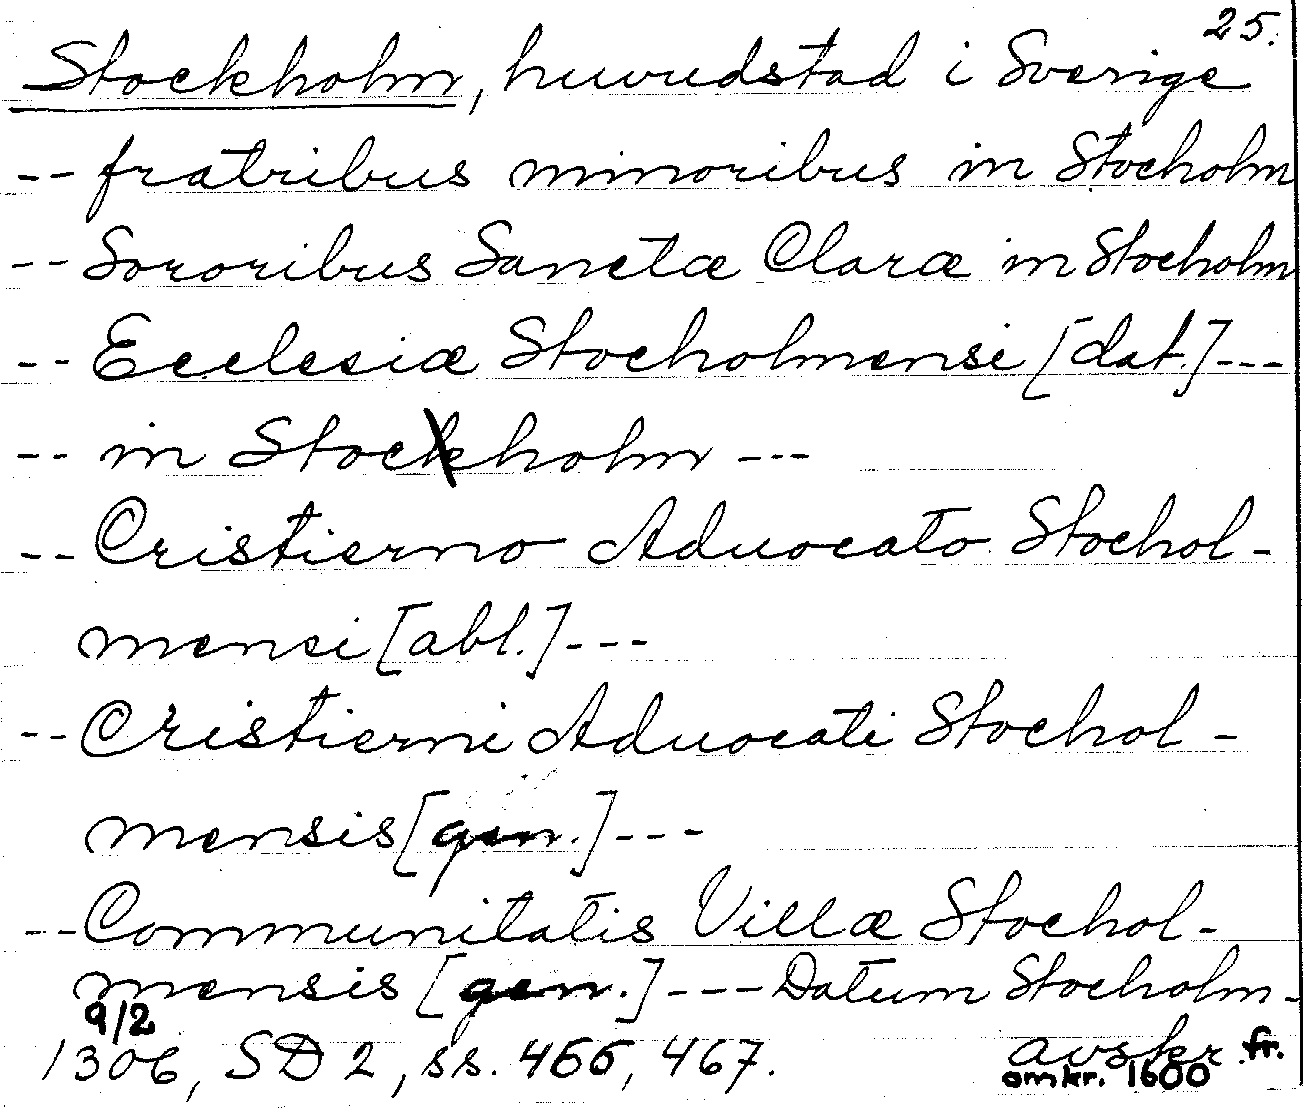 25.
Stockholm, huvudstad i Sverige
-- fratribus minoribus in Stocholm
-- Sororibus Sanctæ Claræ in Stocholm
-- Ecclesiæ Stocholmensi [dat.]---
-- in Stockholm ---
-- Cristierno Aduocato Stochol-
mensi [abl.]---
-- Cristierni Aduocati Stochol-
mensis [gen.]---
-- Communitatis Villæ Stochol-
mensis [gen.]--- Datum Stocholm-
9/2
1306, SD 2, ss. 466, 467. avskr. fr.
omkr. 1600